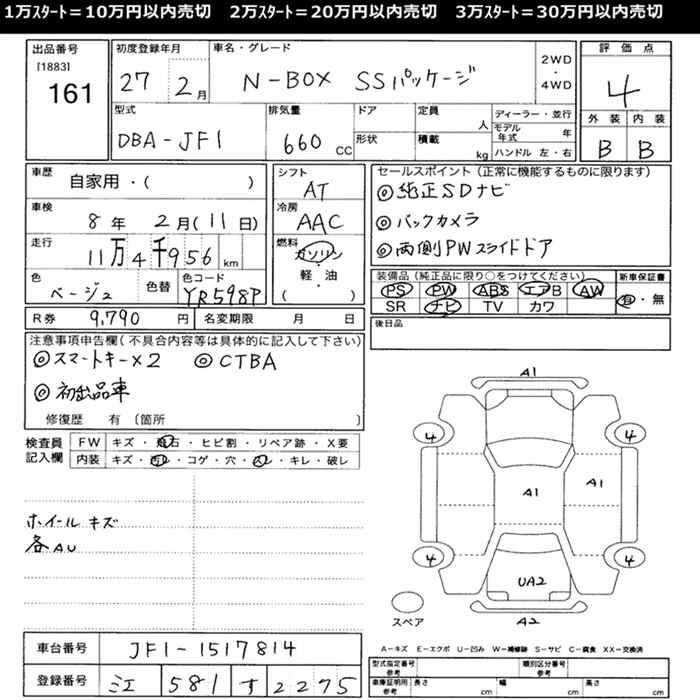 1万スタート＝10万円以内売切　2万スタート＝20万円以内売切　3万スタート＝30万円以内売切
出品番号
[1883]
161
初度登録年月
27 2月
車名・グレード
N-BOX SSパッケージ
2WD
・
4WD
評価点
4
外装 内装
B B
型式
DBA-JF1
排気量
660 CC
ドア
形状
定員
人
積載
kg
ディーラー・並行
モデル年式 年
ハンドル 左・右
車歴
自家用・( )
車検
8年 2月(11日)
走行
11万4千956 km
色
ベージュ2
色替
色コード
YR598P
シフト
AT
冷房
AAC
燃料
ガソリン
・
軽・油
( )
セールスポイント（正常に機能するものに限ります）
◎純正SDナビ
◎バックカメラ
◎両側PWスライドドア
装備品（純正品に限り○をつけてください）
PS PW ABS エアB AW
SR ナビ TV カワ
新車保証書
有・無
後日品
R券 9,790 円
名変期限 月 日
注意事項申告欄（不具合内容等は具体的に記入して下さい）
◎スマートキー×2 ◎CTBA
◎初出品車
修復歴 有 〔箇所 〕
検査員
記入欄
FW キズ・飛石・ヒビ割・リペア跡・X要
内装 キズ・汚レ・コゲ・穴・スレ・キレ・破レ
ホイール キズ
各AU
A1
4 4
A1 A1
4 4
UA2
A2
スペア
A－キズ E－エクボ U－凹み W－補修跡 S－サビ C－腐食 XX－交換済
車台番号 JF1-1517814
登録番号 581 す 2275
型式指定番号
参考
類別区分番号
参考
車庫証明用
参考
長さ cm
幅 cm
高さ cm